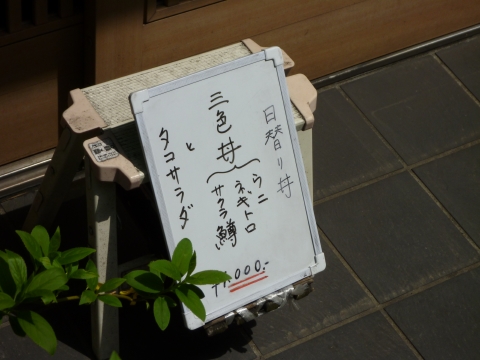 日替り丼
三色丼
ウニ
ネギトロ
サクラ鱒
と
タコサラダ
¥1.000.-